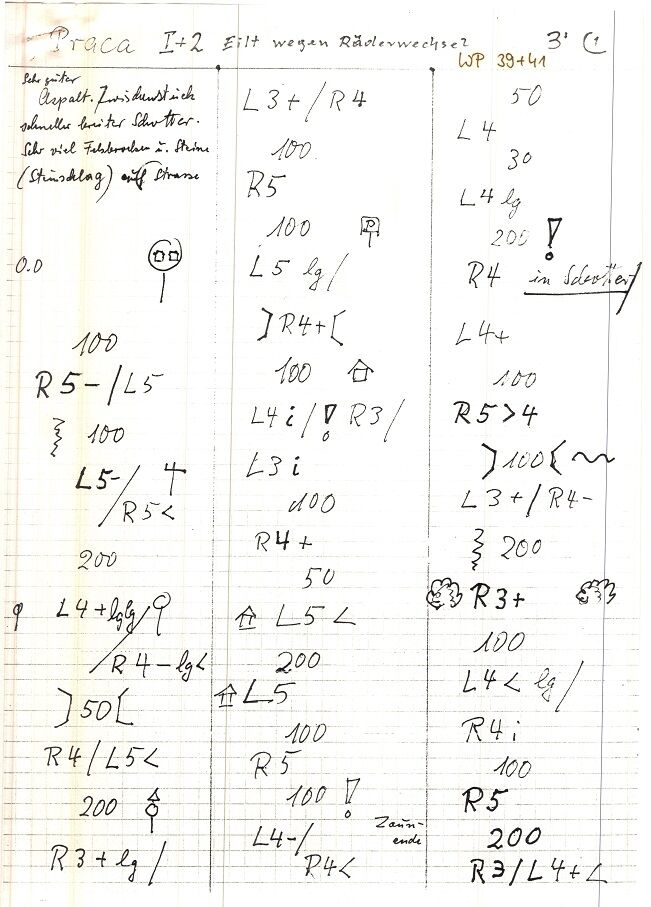 Praca I+2 Eilt wegen Räderwechsel 3' 1
WP 39+41
Sehr guter
Aspalt. Zwischenstück
schneller breiter Schotter.
Sehr viel Felsbrocken u. Steine
(Steinschlag) auf Strasse
0.0
100
R5-/L5
100
L5-/
/R5<
200
L4+lglg/
/R4-lg<
)50[
R4/L5<
200
R3+lg/
L3+/R4
100
R5
100 P
L5 lg/
]R4+[
100
L4i/! R3/
L3i
100
R4+
50
L5<
200
L5
100
R5
100 !
L4-/ Zaun-
ende
R4<
50
L4
30
L4 lg
200 !
R4 in Schotter/
L4+
100
R5>4
)100(
L3+/R4-
200
R3+
100
L4< lg/
R4i
100
R5
200
R3/L4+<